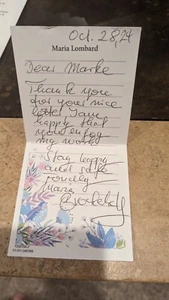 Oct. 28, 24
Maria Lombard
Dear Marke
Thank you
for your nice
letter I am
happy that
you enjoy
my work
Stay happy
and safe
Fondly
Maria